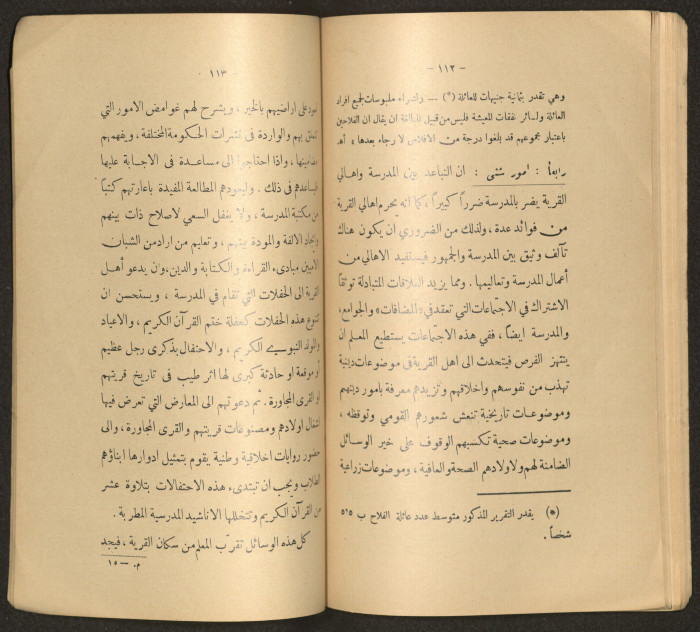 – ١١٢ –
وهي تقدر بثمانية جنيهات للعائلة (*) — ولشراء ملبوسات لجميع افراد
العائلة ولسائر نفقات المعيشة فليس من قبيل المبالغة ان يقال ان الفلاحين
باعتبار مجموعهم قد بلغوا درجة من الافلاس لا رجاء بعدها » اهـ
رابعاً : امور شتى : ان التباعد بين المدرسة واهالي
القرية يضر بالمدرسة ضرراً كبيراً ، كما انه يحرم اهالي القرية
من فوائد عدة ، ولذلك من الضروري أن يكون هناك
تآلف وثيق بين المدرسة والجمهور فيستفيد الاهالي من
أعمال المدرسة وتعاليمها . ومما يزيد العلاقات المتبادلة توثقاً
الاشتراك في الاجتماعات التي تعقد في «المضافات» والجوامع،
والمدرسة ايضاً ، ففي هذه الاجتماعات يستطيع المعلم ان
ينتهز الفرص فيتحدث الى اهل القرية في موضوعات دينية
تهذب من نفوسهم واخلاقهم وتزيدهم معرفة بامور دينهم
وموضوعات تاريخية تنعش شعورهم القومي وتوقظه ،
وموضوعات صحية تكسبهم الوقوف على خير الوسائل
الضامنة لهم ولاولادهم الصحة والعافية ، وموضوعات زراعية
(*) يقدر التقرير المذكور متوسط عدد عائلة الفلاح ب ٥١٥
شخصاً .
١١٣ ٠
تعود على اراضيهم بالخير ، ويشرح لهم غوامض الامور التي
تتعلق بهم والواردة في نشرات الحكومة المختلفة ، ويفهمهم
مضامينها ، واذا احتاجوا الى مساعدة في الاجابة عليها
فيساعدهم في ذلك . وليعودهم المطالعة المفيدة باعارتهم كتباً
من مكتبة المدرسة ، ولا يغفل السعي لاصلاح ذات بينهم
وايجاد الالفة والمودة بينهم ، وتعليم من اراد من الشبان
الاميين مبادىء القراءة والكتابة والدين، وان يدعو أهل
القرية الى الحفلات التي تقام في المدرسة ، ويستحسن ان
تتنوع هذه الحفلات كحفلة ختم القرآن الكريم ، والاعياد
والمولد النبوي الكريم ، والاحتفال بذكرى رجل عظيم
أو موقعة او حادثة كبرى لها اثر طيب في تاريخ قريتهم
او القرى المجاورة . ثم دعوتهم الى المعارض التي تعرض فيها
اشغال اولادهم ومصنوعات قريتهم والقرى المجاورة ، والى
حضور روايات اخلاقية وطنية يقوم بتمثيل ادوارها ابناؤهم
الطلاب ويجب ان تبتدىء هذه الاحتفالات بتلاوة عشر
من القرآن الكريم وتتخللها الاناشيد المدرسية المطربة .
كل هذه الوسائل تقرّب المعلم من سكان القرية ، فيجد
م – ١٥